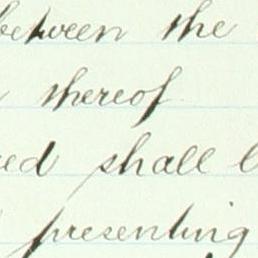 between the
thereof
shall
presenting